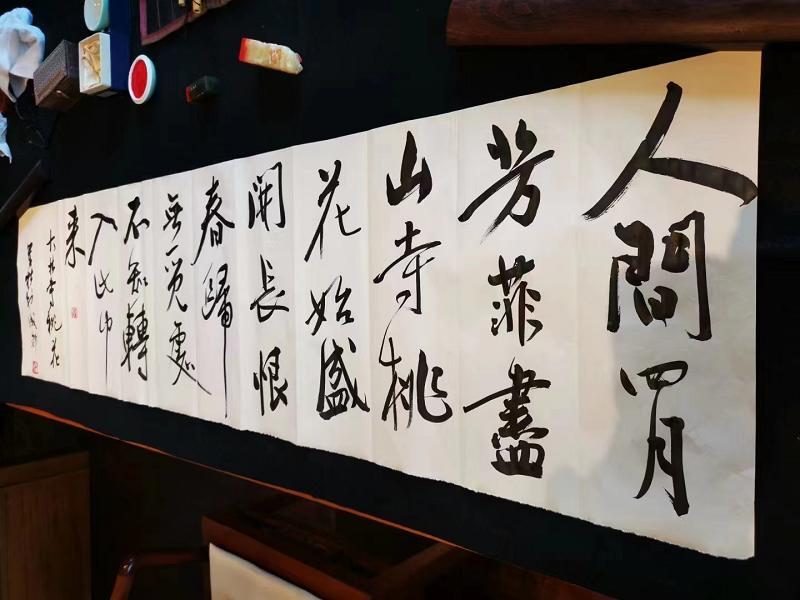 人間四月
芳菲盡
山寺桃
花始盛
開長恨
春歸
無覓處
不知轉
入此中
来
大林寺桃花